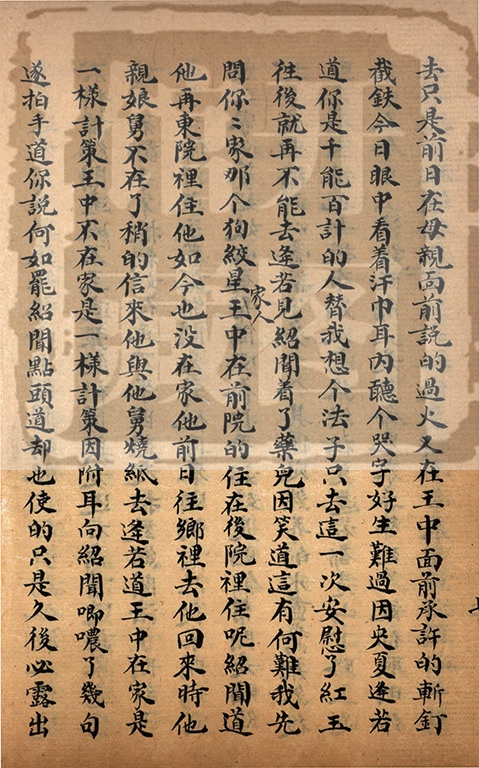 去只是前日在母親面前說的過火又在王中面前承許的斬釘
截鉄今日眼中看着汗巾耳內聽个哭字好生難過因央夏逄若
道你是千能百計的人替我想个法子只去這一次安慰了紅玉
徃後就再不能去逄若見紹聞着了藥兒因笑道這有何難我先
問你〻家那个狗絞星王中在前院的住在後院裡住呢紹聞道
家人
他再東院裡住他如今也没在家他前日徃鄉裡去他回來時他
親娘舅不在了稍的信來他與他舅燒紙去逄若道王中在家是
一樣計策王中不在家是一樣計策因附耳向紹聞唧噥了幾句
遂拍手道你說何如罷紹聞點頭道却也使的只是久後必露出